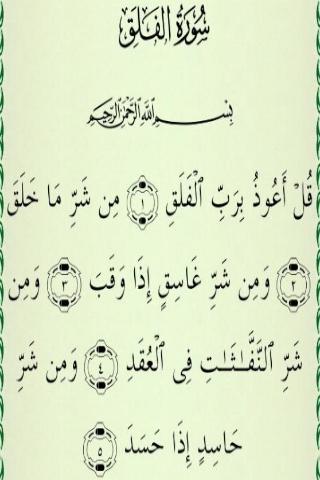 سُورَةُ الْفَلَقِ
بِسْمِ اللَّهِ الرَّحْمَٰنِ الرَّحِيمِ
قُلْ أَعُوذُ بِرَبِّ ٱلْفَلَقِ ١ مِن شَرِّ مَا خَلَقَ
٢ وَمِن شَرِّ غَاسِقٍ إِذَا وَقَبَ ٣ وَمِن
شَرِّ ٱلنَّفَّـٰثَـٰتِ فِى ٱلْعُقَدِ ٤ وَمِن شَرِّ
حَاسِدٍ إِذَا حَسَدَ ٥